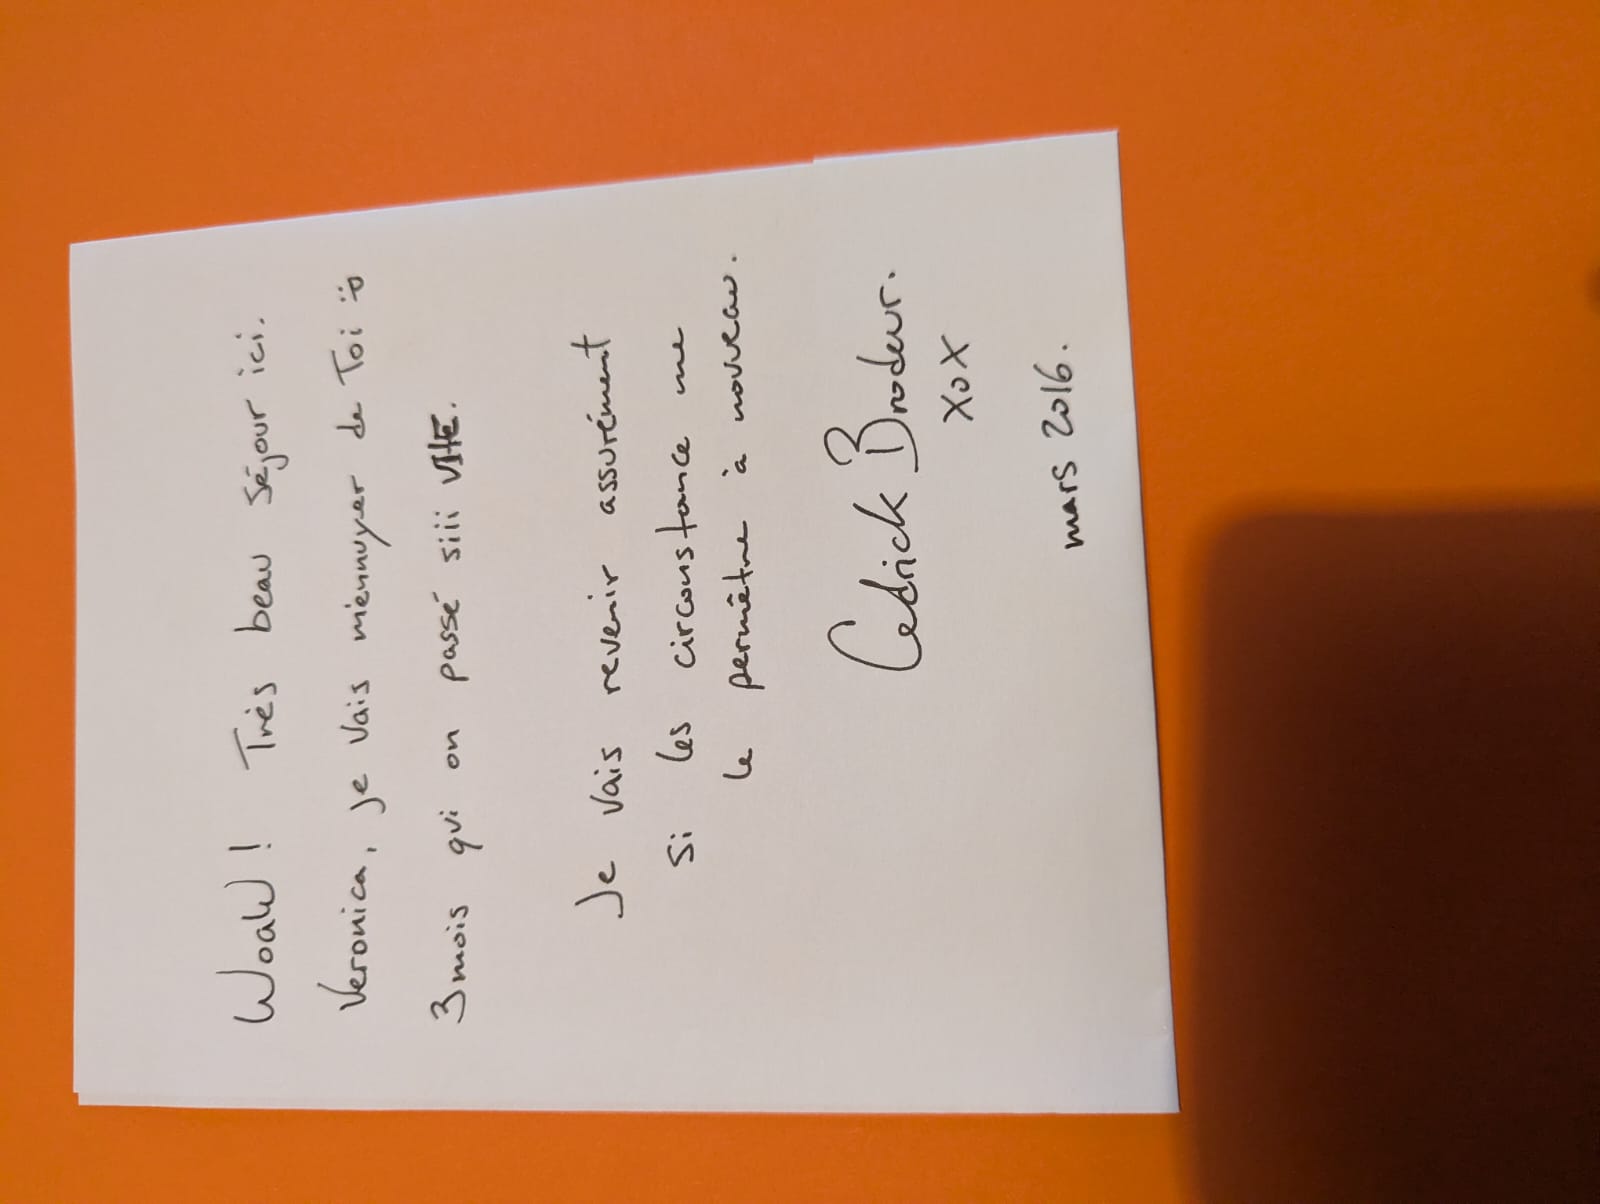 Woaw! Très beau séjour ici.
Veronica, je vais miennuyer de Toi :D
3 mois qui on passé siii VITE.
Je vais revenir assurément
si les circonstance me
le permêtre à nouveau.
Cedrick Brodeur.
XOX
mars 2016.